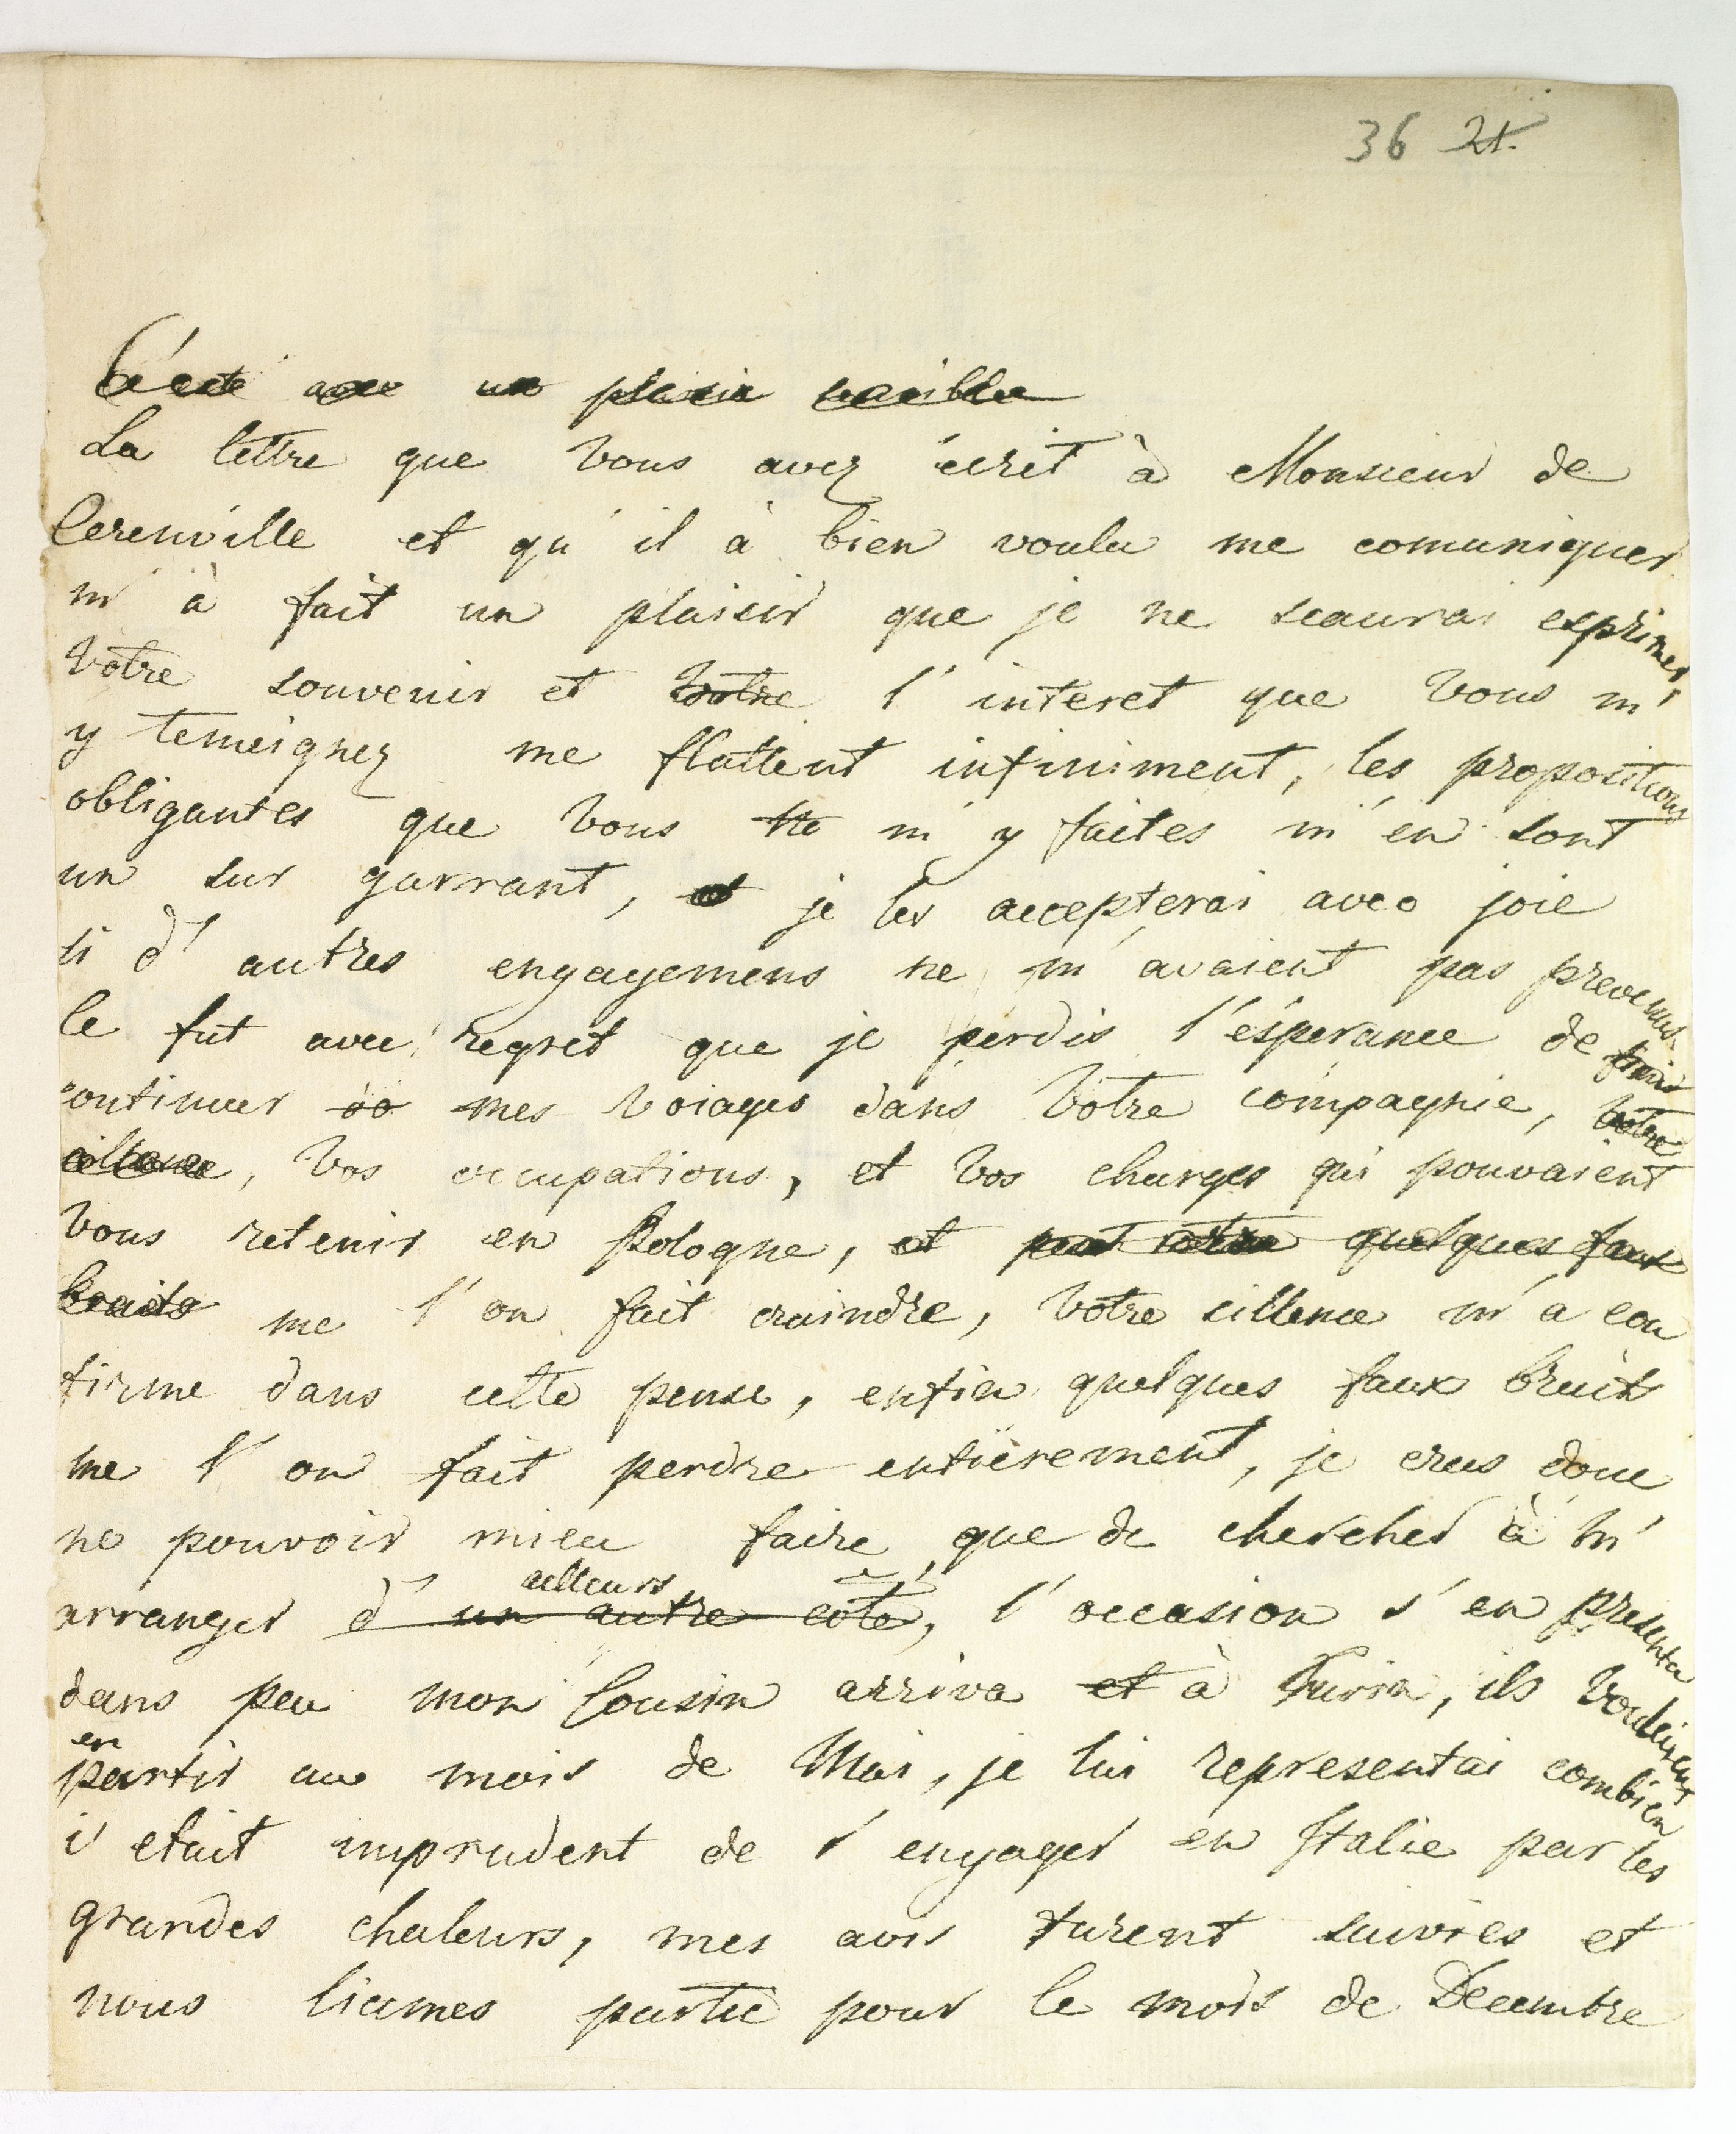 36 21.
C'este avec un plaisir
La lettre que Vous avez écrit à Monsieur de
Cerenville et qu'il à bien voulu me comuniquer
m'à fait un plaisir que je ne scaurai exprimer,
Votre souvenir et Votre l'interet que Vous m'
y temeignez me flattent infiniment, les propositions
obligantes que Vous me m'y faites m'en sont
un sur garrant, et je les accepterai avec joie
si d'autres engagemens ne m'avaient pas prevenus.
Ce fut avec regret que je perdis l'ésperance de
continuer mes Voiages dans Votre compagnie, Votre
cillence, Vos occupations, et Vos charges qui pouvaient
Vous retenir en Pologne, et peut etre quelques faux
bruits me l'on fait craindre, Votre cillence m'a con
firme dans cette pense, enfin quelques faux bruits
me l'on fait perdre entièrement, je crus donc
ne pouvoir mieu faire que de chercher à m'
ailleurs
arranger d'un autre coté, l'occasion s'en presenta
dans peu mon Cousin arriva et à Turin, ils Voulurent
en
partir au mois de Mai, je lui representai combien
i' etait imprudent de s'engager en Italie par les
grandes chaleurs, mes avis furent suivies et
nous liames partie pour le mois de Decembre